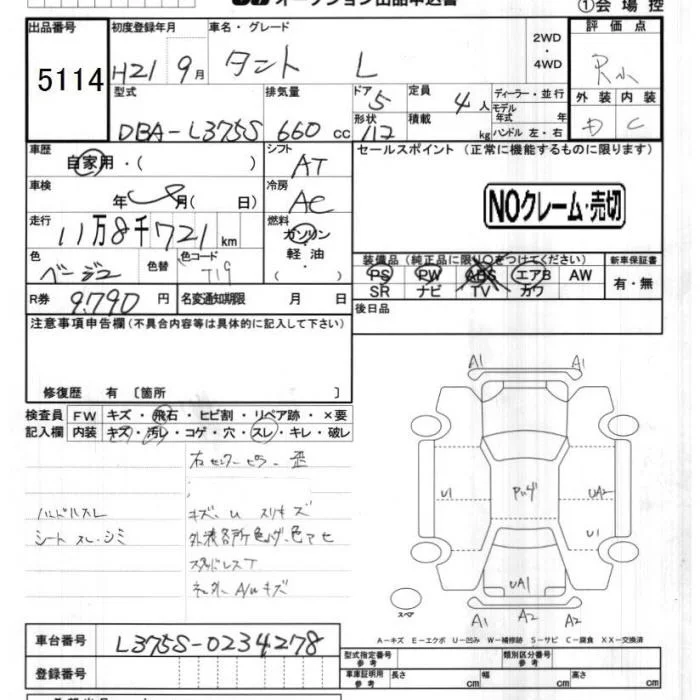 オークション出品申込書
①会場控
出品番号
5114
初度登録年月
H21 9月
車名・グレード
タント L
2WD
・
4WD
評価点
外装 内装
D C
型式
DBA-L375S
排気量
660 cc
ドア
5
形状
定員
4人
積載
kg
ディーラー・並行
モデル
年式 年
ハンドル 左・右
車歴
自家用・( )
シフト
AT
セールスポイント(正常に機能するものに限ります)
NOクレーム・売切
車検
年 月( 日)
冷房
AC
走行
11万8千721km
燃料
ガソリン
軽油
・
( )
色
ベージュ
色替
色コード
T19
装備品(純正品に限り○をつけてください)
PS PW ABS エアB AW
SR ナビ TV カワ
新車保証書
有・無
R券 9,790円
名変通知期限 月 日
後日品
注意事項申告欄(不具合内容等は具体的に記入して下さい)
修復歴 有〔箇所 〕
検査員 FW キズ・飛石・ヒビ割・リペア跡・×要
記入欄 内装 キズ・汚レ・コゲ・穴・スレ・キレ・破レ
右センターピラー 歪
ハンドルスレ
シートスレ・シミ
キズ、U スリキズ
外装各所色ムダ、色アセ
スタッドレスT
A1 A1
U1
UA2
U1
UA1
A1 A2 A2
スペア
A-キズ E-エクボ U-凹み W-補修跡 S-サビ C-腐食 XX-交換済
車台番号
L375S-0234278
登録番号
型式指定番号
参考
類別区分番号
参考
車庫証明用
参考
長さ cm 幅 cm 高さ cm